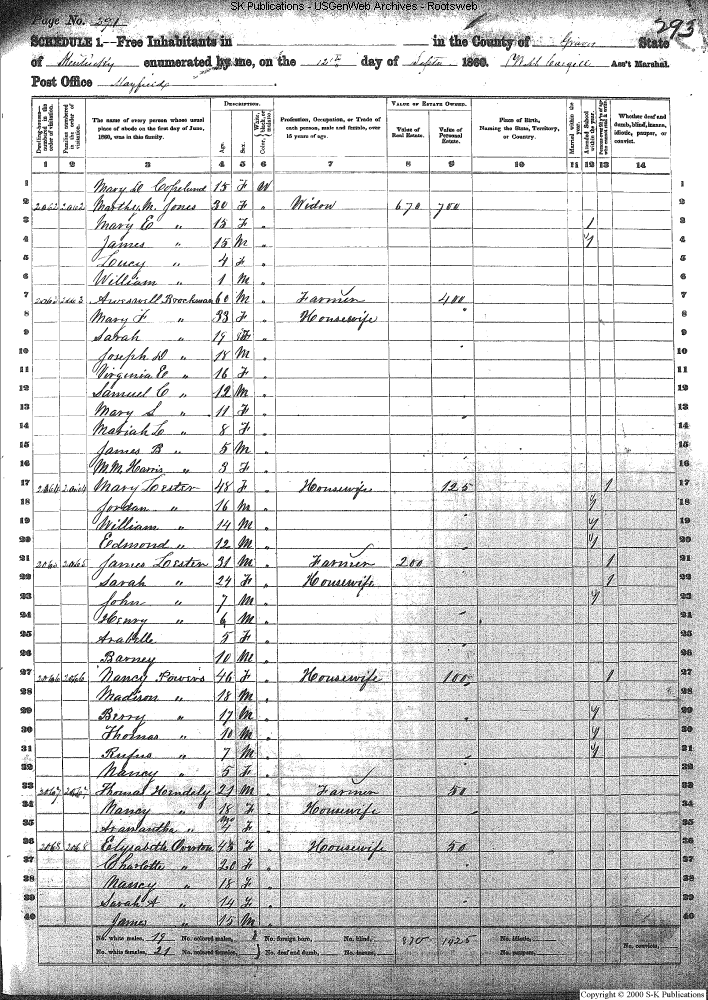 SK Publications - USGenWeb Archives - Rootsweb
Page No. 291
293
SCHEDULE 1.—Free Inhabitants in in the County of Graves State
of Kentucky enumerated by me, on the 12th day of Septr 1860. Ass't Marshal.
Post Office Mayfield
DESCRIPTION. VALUE OF ESTATE OWNED.
Dwelling-houses—numbered in the order of visitation. Families numbered in the order of visitation. The name of every person whose usual place of abode on the first day of June, 1860, was in this family. Age. Sex. Color, White, black, or mulatto. Profession, Occupation, or Trade of each person, male and female, over 15 years of age. Value of Real Estate. Value of Personal Estate. Place of Birth, Naming the State, Territory, or Country. Married within the year. Attended School within the year. Whether deaf and dumb, blind, insane, idiotic, pauper, or convict.
1 2 3 4 5 6 7 8 9 10 11 12 13 14
1 Mary D Copelund 15 F W 1
2 2062 2062 Martha M. Jones 30 F " Widow 670 700 2
3 Mary E " 13 F " / 3
4 James " 15 M " 4
5 Lucy " 4 F " 5
6 William " 1 M " 6
7 2063 2063 Boockman 60 M " Farmer 400 7
8 Mary F " 33 F " Housewife 8
9 Sarah " 19 F " 9
10 Joseph D " 18 M " 10
11 Virginia E " 16 F " 11
12 Samuel C " 12 M " 12
13 Mary S " 11 F " 13
14 Mariah L " 8 F " 14
15 James B " 5 M " 15
16 M M Harris " 3 F " 16
17 2064 2064 Mary Lester 48 F " Housewife 125 1 17
18 Jordan " 16 M " 18
19 William " 14 M " 19
20 Edmond " 12 M " 20
21 2065 2065 James Lester 31 M " Farmer 200 1 21
22 Sarah " 24 F " Housewife 1 22
23 John " 7 M " 23
24 Henry " 6 M " 24
25 Arabelle 5 F " 25
26 Barney 10 M " 26
27 2066 2066 Nancy Powers 46 F " Housewife 100 1 27
28 Madison " 18 M " 28
29 Berry " 17 M " 29
30 Thomas " 10 M " 30
31 Rufus " 7 M " 31
32 Nancy " 5 F " 32
33 2067 2067 Thomas Hendely 21 M " Farmer 50 33
34 Nancy " 18 F " Housewife 34
35 Aramantha " 4 Mo F " 35
36 2068 2068 Elizabeth Overton 43 F " Housewife 50 36
37 Charlotte " 20 F " 37
38 Nancy " 18 F " 38
39 Sarah A " 14 F " 39
40 James " 15 M " 40
No. white males, 19 No. colored males, No. foreign born, No. blind, 870 1425 No. idiotic,
No. white females, 21 No. colored females, No. deaf and dumb, No. insane, No. paupers, No. convicts,
Copyright © 2000 S-K Publications